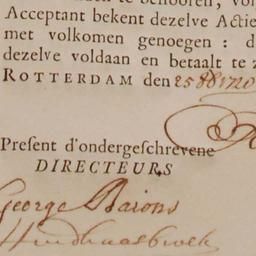 te behooren, vol
Acceptant bekent dezelve Actie
met volkomen genoegen : d
dezelve voldaan en betaalt te z
ROTTERDAM den 25 8b 1720
Present d'ondergeschrevene
DIRECTEURS
George Baions